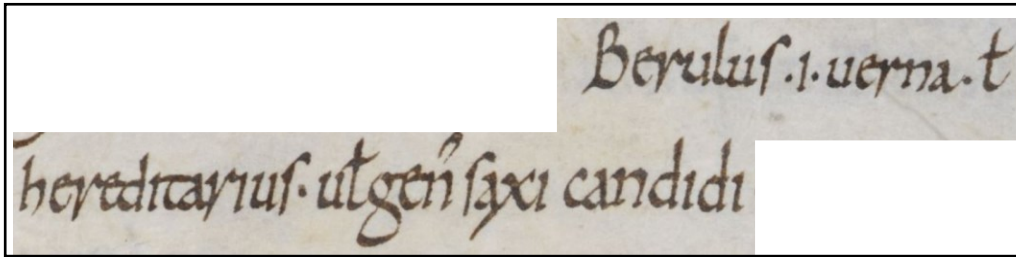 Berulus .i. uerna . ł
hereditarius. ul̵ gen̄ saxi candidi